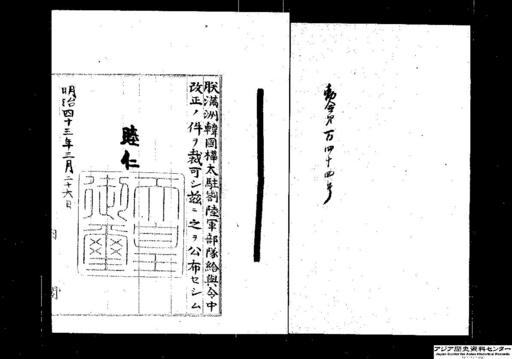 勅令第百四十四号
朕滿洲韓國樺太駐劄陸軍部隊給與令中
改正ノ件ヲ裁可シ茲ニ之ヲ公布セシム
睦仁
天皇
御璽
明治四十三年三月二十六日
内閣
アジア歴史資料センター
Japan Center for Asian Historical Records